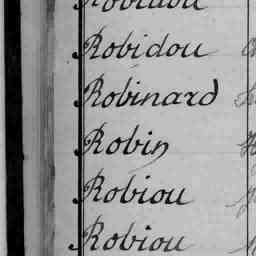 Robidou
Robidou
Robinard
Robin
Robiou
Robiou